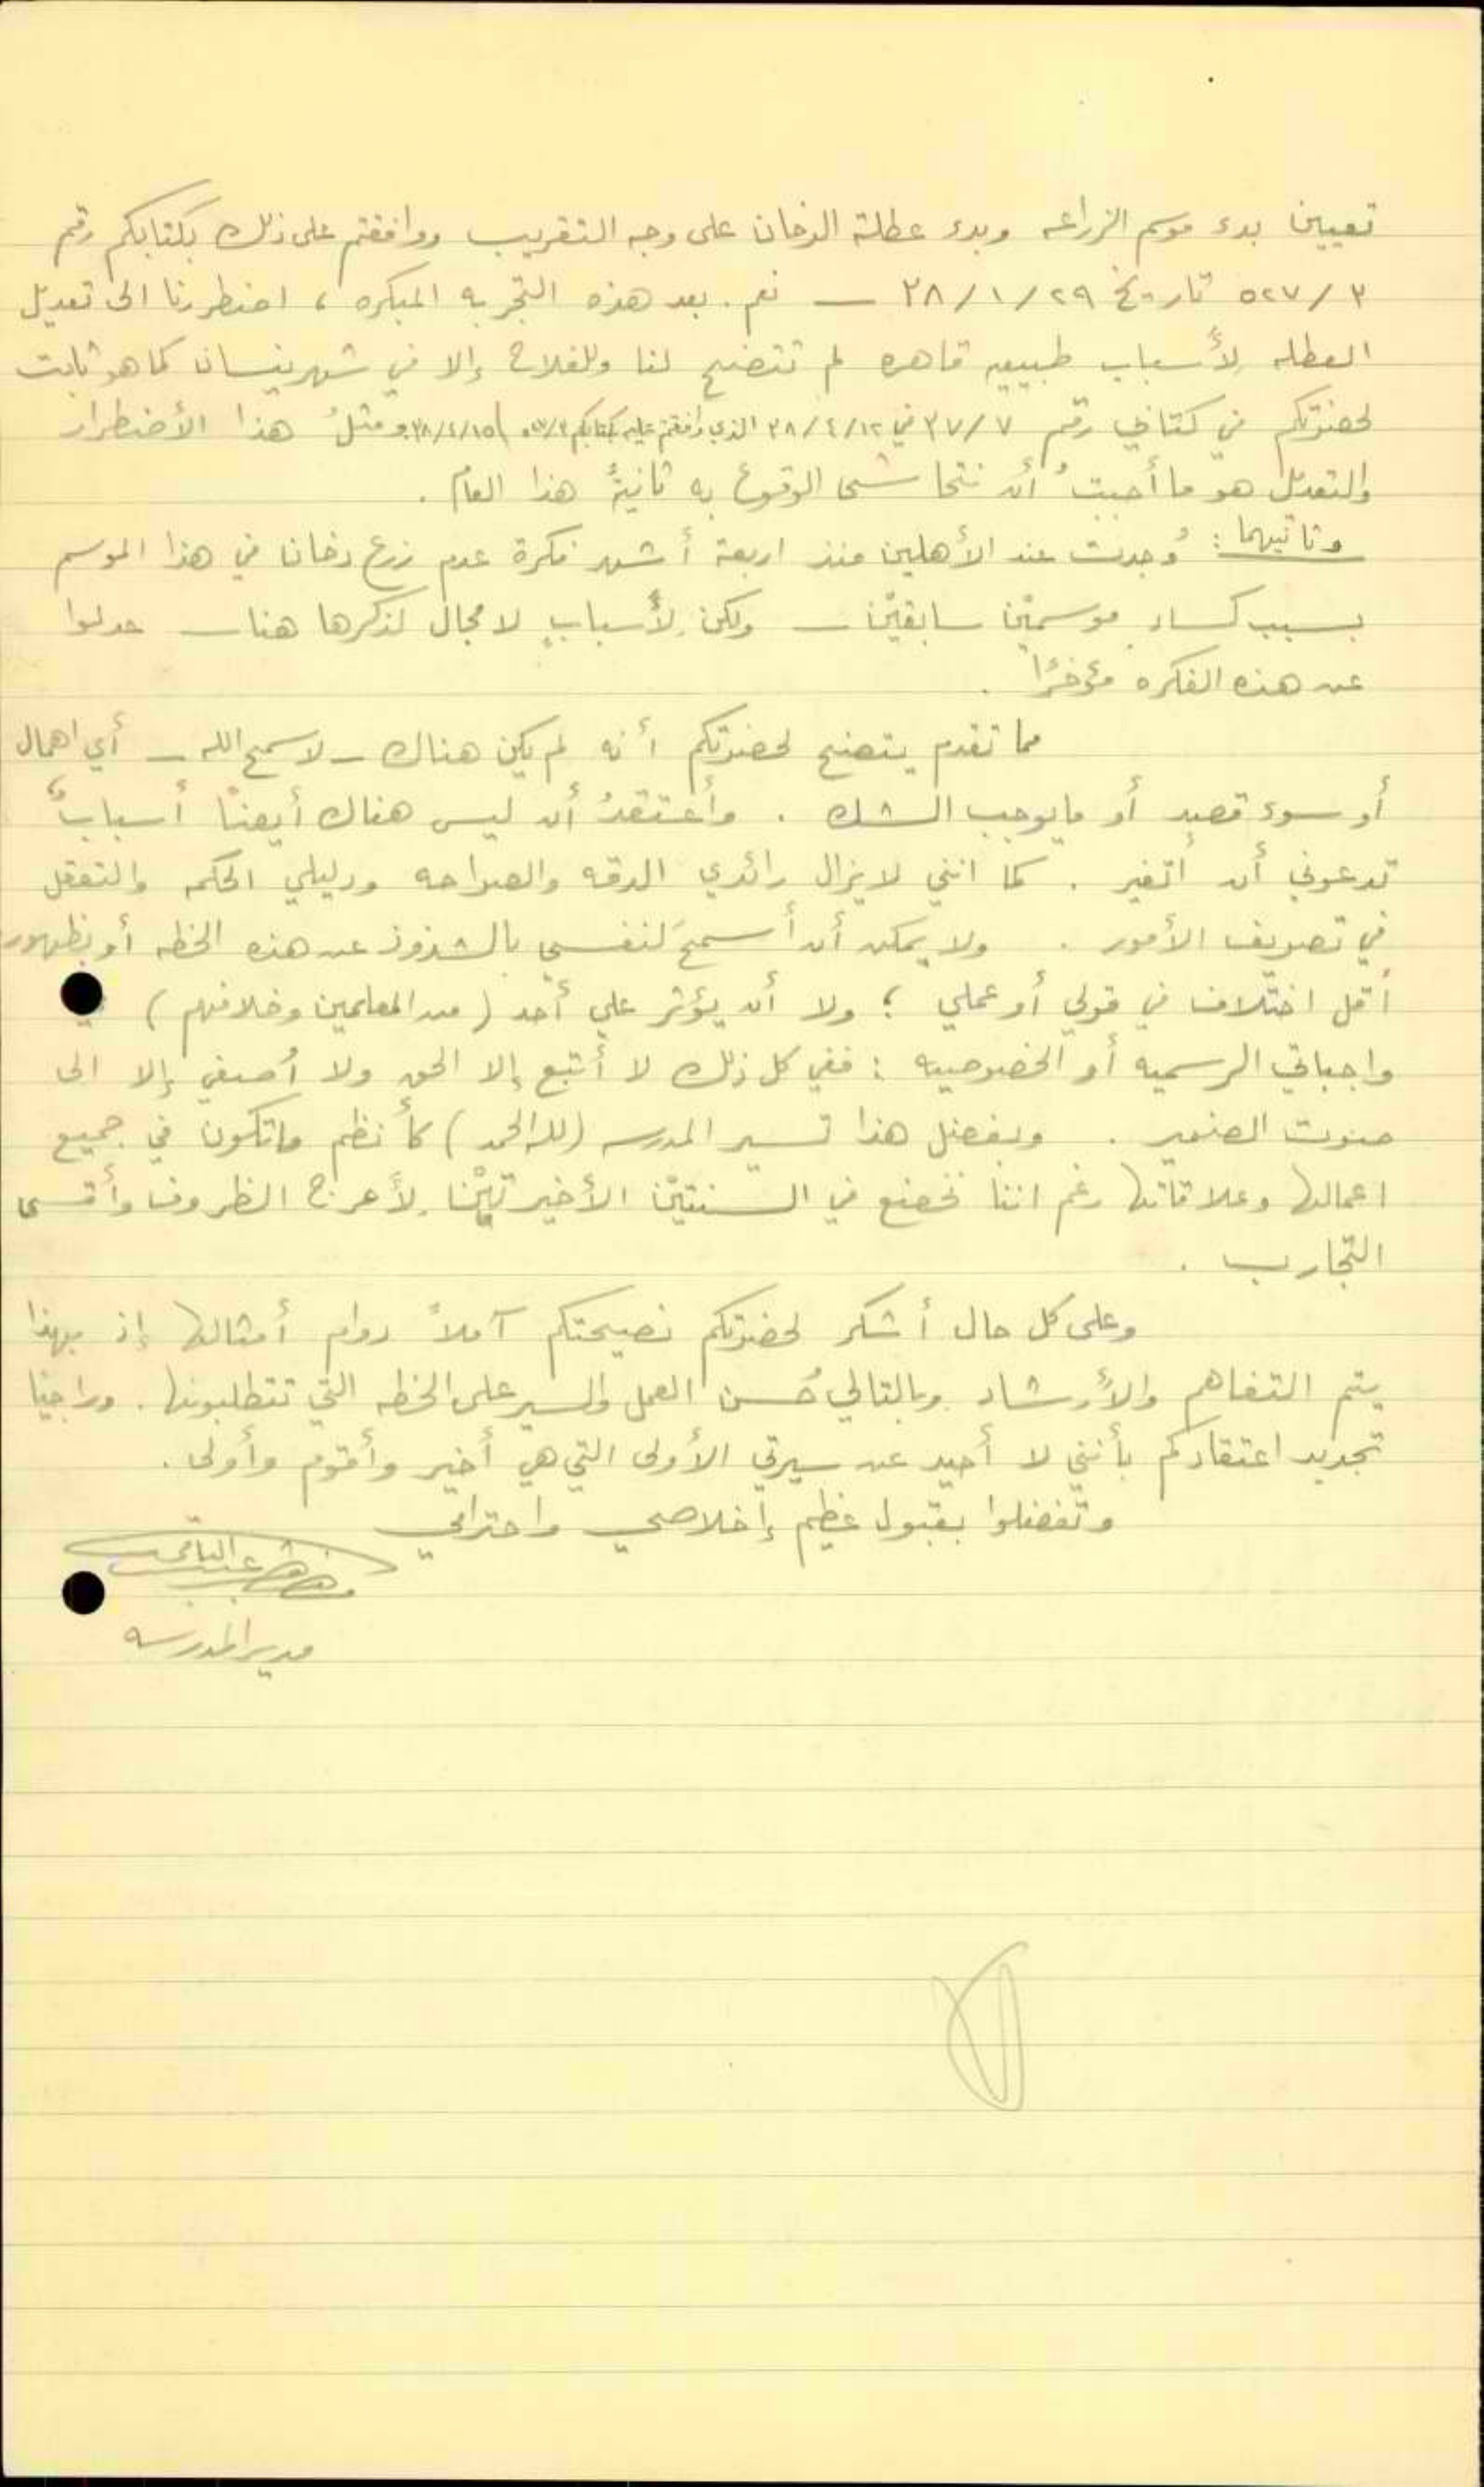 تعيين بدء موسم الزراعه وبدء عطلة الدخان على وجه التقريب ووافقتم على ذلك بكتابكم رقم
٥٢٧/٣ تاريخ ٣٨/١/٢٩ — نعم . بعد هذه التجربه المبكره ، اضطررنا الى تعديل
العطله لأسباب طبيعيه قاهره لم تتضح لنا وللفلاح إلا في شهر نيسان كما هو ثابت
لحضرتكم في كتابي رقم ٣٧/٧ في ٣٨/٤/١٢ الذي وافقتم عليه بكتابكم ٣٨/٤/١٥ ومثلُ هذا الأضطرار
والتعديل هو ما أحببتُ أن نتحاشى الوقوع به ثانيةً هذا العام .
وثانيهما : وُجدت عند الأهلين منذ اربعة أشهر فكرة عدم زرع دخان في هذا الموسم
بسبب كساد موسميْن سابقيْن — ولكن لأسبابٍ لا مجال لذكرها هنا — عدلوا
عن هذه الفكره مؤخرًا .
مما تقدم يتضح لحضرتكم أنه لم يكن هناك — لا سمح الله — أي اهمال
أو سوء قصدٍ أو ما يوجب الشك . وأعتقدُ أن ليس هناك أيضًا أسبابٌ
تدعوني أن أتغير . كما انني لا يزال رائدي الدقه والصراحه ودليلي الحكمه والتعقل
في تصريف الأمور . ولا يمكن أن أسمحَ لنفسي بالشذوذ عن هذه الخطه أو بظهور
أقل اختلاف في قولي أو عملي ؛ ولا أن يؤثر علي أحد ( من المعلمين وخلافهم )
واجباتي الرسميه أو الخصوصيه : ففي كل ذلك لا أتبع إلا الحق ولا أصغي إلا الى
صوت الضمير . وبفضل هذا تسير المدرسه ( لله الحمد ) كأنظم ما تكون في جميع
اعمالها وعلاقاتها رغم اننا نخضع في السنتيْن الأخيرتيْن لأعرج الظروف وأقسى
التجارب .
وعلى كل حال أشكر لحضرتكم نصيحتكم آملاً دوام أمثالها إذ بهذا
يتم التفاهم والأرشاد وبالتالي حُسن العمل والسير على الخطه التي تتطلبونها . وراجيًا
تجديد اعتقادكم بأنني لا أحيد عن سيرتي الأولى التي هي أخير وأقوم وأولى .
وتفضلوا بقبول عظيم إخلاصي واحترامي
مدير المدرسه